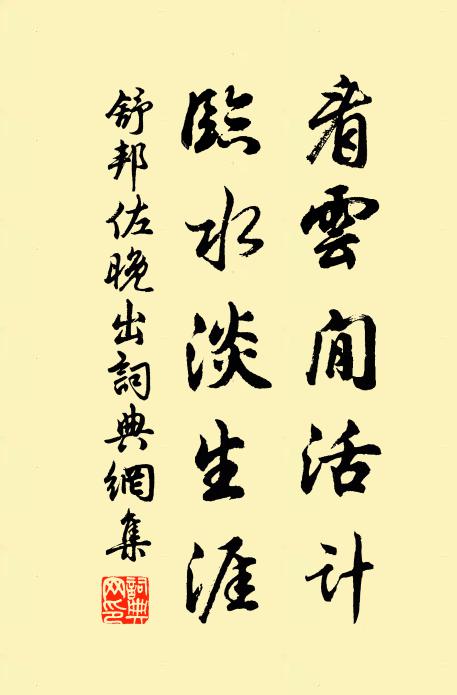 看雲閒活計
臨水淡生涯
舒邦佐晚出詞典網集
詞典網印